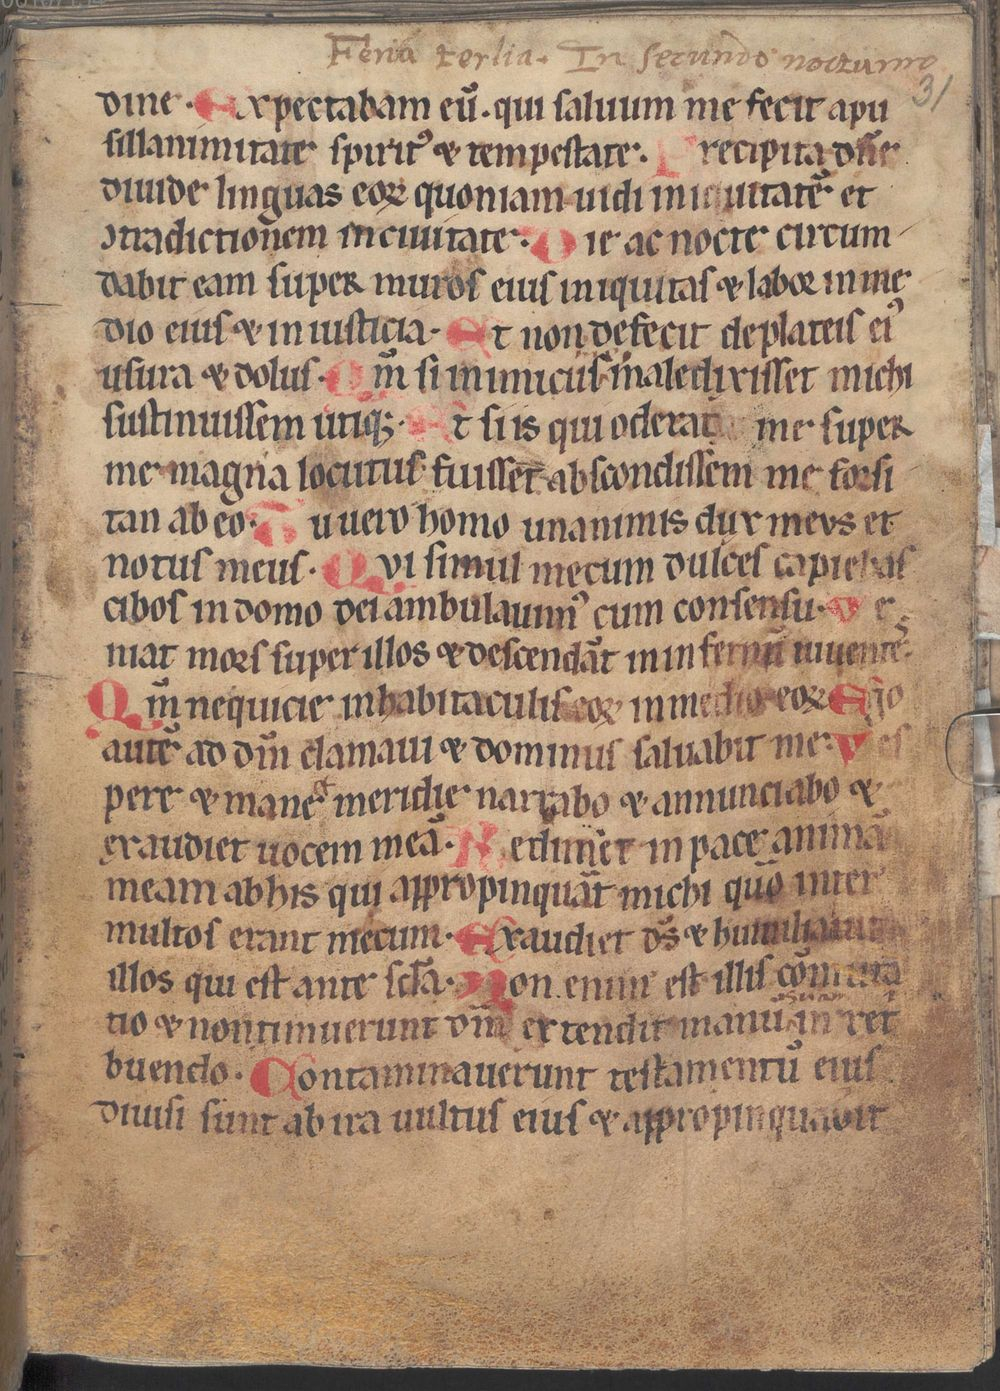 Feria tertia. In secundo nocturno
31
dine. Expectabam eū. qui saluum me fecit a pu
sillanimitate spirit⁹ & tempestate. Precipita dn̄e
diuide linguas eoꝝ quoniam uidi iniquitatē et
ↄtradictionem in ciuitate. Die ac nocte circum
dabit eam super muros eius iniquitas & labor in me
dio eius & iniusticia. Et non defecit de plateis ei⁹
usura & dolus. Qm̄ si inimicus maledixisset michi
sustinuissem utiqꝫ. Et si is qui oderat me super
me magna locutus fuisset abscondissem me forsi
tan ab eo. Tu uero homo unanimis dux meus et
notus meus. Qui simul mecum dulces capiebas
cibos in domo dei ambulauim⁹ cum consensu. Ve
niat mors super illos & descendāt in infernū uiuentes.
Qm̄ nequicie in habitaculis eoꝝ in medio eoꝝ Ego
autē ad dm̄ clamaui & dominus saluabit me. Ves
pere & mane & meridie narrabo & annunciabo &
exaudiet uocem meā. Redimet in pace animā
meam ab his qui appropinquāt michi qūo inter
multos erant mecum. Exaudiet ds̄ & humiliauit
illos qui est ante scl̄a. Non enim est illis cōmuta
tio & non timuerunt dm̄ extendit manū suam in ret
buendo. Contaminauerunt testamentū eius
diuisi sunt ab ira uultus eius & appropinquauit